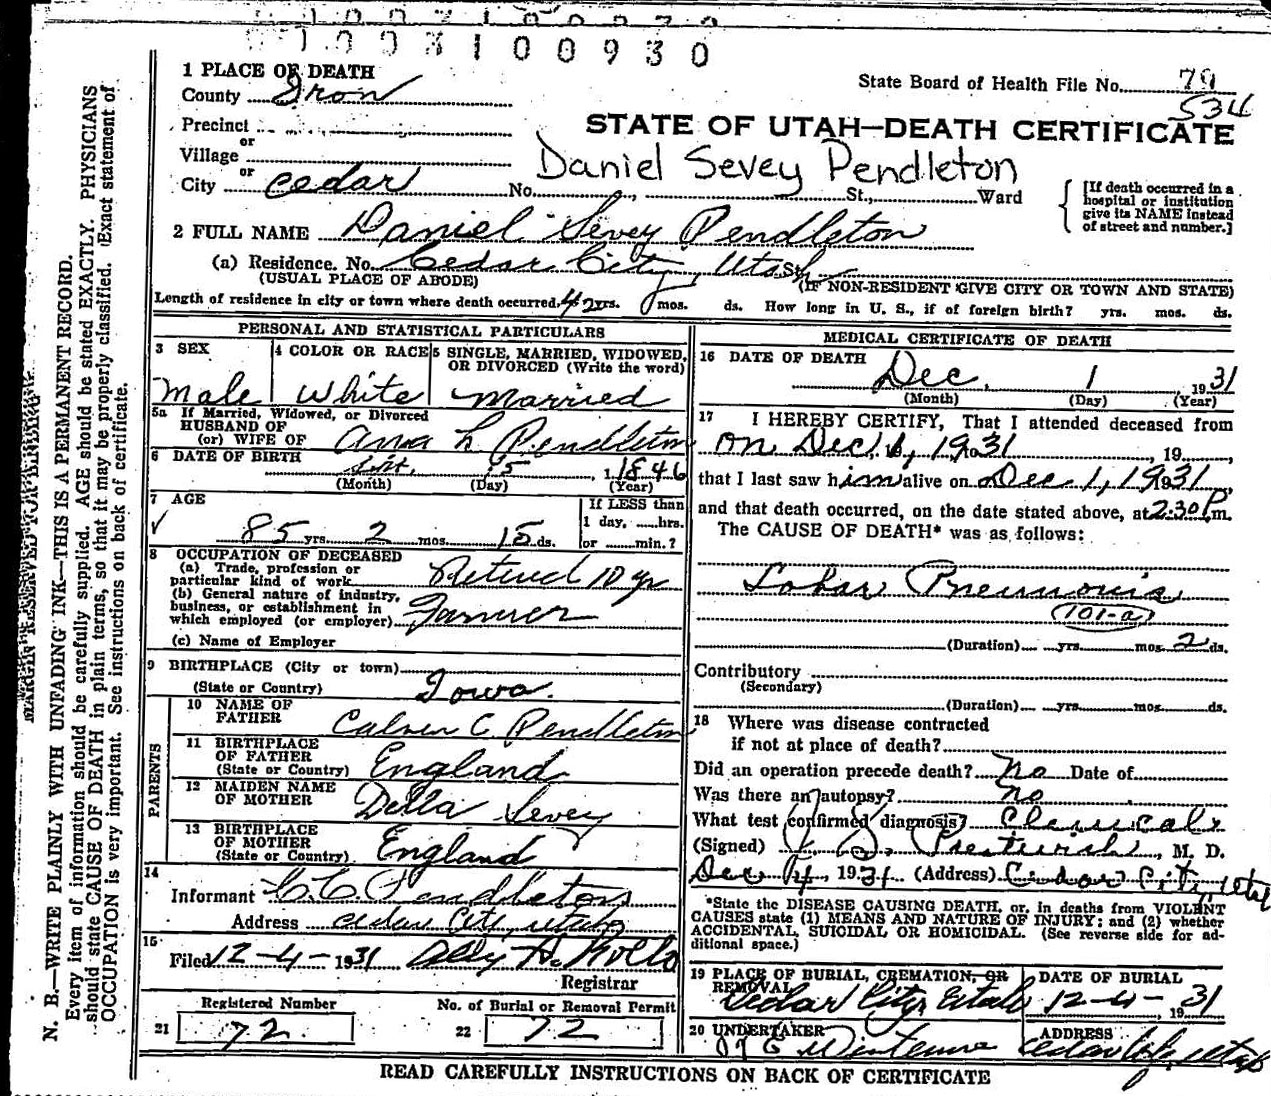 1003100930
1 PLACE OF DEATH
State Board of Health File No. 79
County Iron
534
Precinct
STATE OF UTAH—DEATH CERTIFICATE
or
Village
Daniel Sevey Pendleton
or
City Cedar No. St., Ward
[If death occurred in a
hospital or institution
give its NAME instead
of street and number.]
2 FULL NAME Daniel Sevey Pendleton
(a) Residence. No. Cedar City, Utah St.
(USUAL PLACE OF ABODE) (IF NON-RESIDENT GIVE CITY OR TOWN AND STATE)
Length of residence in city or town where death occurred 42 yrs. mos. ds. How long in U. S., if of foreign birth? yrs. mos. ds.
PERSONAL AND STATISTICAL PARTICULARS
3 SEX
Male
4 COLOR OR RACE
White
5 SINGLE, MARRIED, WIDOWED,
OR DIVORCED (Write the word)
Married
5a If Married, Widowed, or Divorced
HUSBAND OF
(or) WIFE OF Ana L Pendleton
6 DATE OF BIRTH 15, 1846
(Month) (Day) (Year)
7 AGE
85 yrs. 2 mos. 15 ds.
If LESS than
1 day, hrs.
or min.?
8 OCCUPATION OF DECEASED
(a) Trade, profession or
particular kind of work Retired 10 yr
(b) General nature of industry,
business, or establishment in
which employed (or employer) Farmer
(c) Name of Employer
9 BIRTHPLACE (City or town)
(State or Country) Iowa.
PARENTS
10 NAME OF
FATHER Calvin C. Pendleton
11 BIRTHPLACE
OF FATHER
(State or Country) England
12 MAIDEN NAME
OF MOTHER Della Sevey
13 BIRTHPLACE
OF MOTHER
(State or Country) England
14
Informant C. C. Pendleton
Address Cedar City, Utah
15
Filed 12-4-1931
Registrar
Registered Number
21 72
No. of Burial or Removal Permit
22 72
MEDICAL CERTIFICATE OF DEATH
16 DATE OF DEATH
Dec. 1 1931
(Month) (Day) (Year)
17 I HEREBY CERTIFY, That I attended deceased from
on Dec 1, 1931, 19
that I last saw him alive on Dec 1, 1931,
and that death occurred, on the date stated above, at 2:30 P.m.
The CAUSE OF DEATH* was as follows:
Lobar Pneumonia
101-a
(Duration) yrs. mos. 2 ds.
Contributory
(Secondary)
(Duration) yrs. mos. ds.
18 Where was disease contracted
if not at place of death?
Did an operation precede death? No Date of
Was there an autopsy? No
What test confirmed diagnosis?
(Signed) , M. D.
Dec 4, 1931 (Address) Cedar City, Utah
*State the DISEASE CAUSING DEATH, or, in deaths from VIOLENT
CAUSES state (1) MEANS AND NATURE OF INJURY; and (2) whether
ACCIDENTAL, SUICIDAL OR HOMICIDAL. (See reverse side for ad-
ditional space.)
19 PLACE OF BURIAL, CREMATION, OR
REMOVAL
Cedar City Utah
DATE OF BURIAL
12-4-, 1931
20 UNDERTAKER
ADDRESS
Cedar City, Utah
READ CAREFULLY INSTRUCTIONS ON BACK OF CERTIFICATE
MARGIN RESERVED FOR BINDING
N. B.—WRITE PLAINLY WITH UNFADING INK—THIS IS A PERMANENT RECORD.
Every item of information should be carefully supplied. AGE should be stated EXACTLY. PHYSICIANS
should state CAUSE OF DEATH in plain terms, so that it may be properly classified. Exact statement of
OCCUPATION is very important. See instructions on back of certificate.